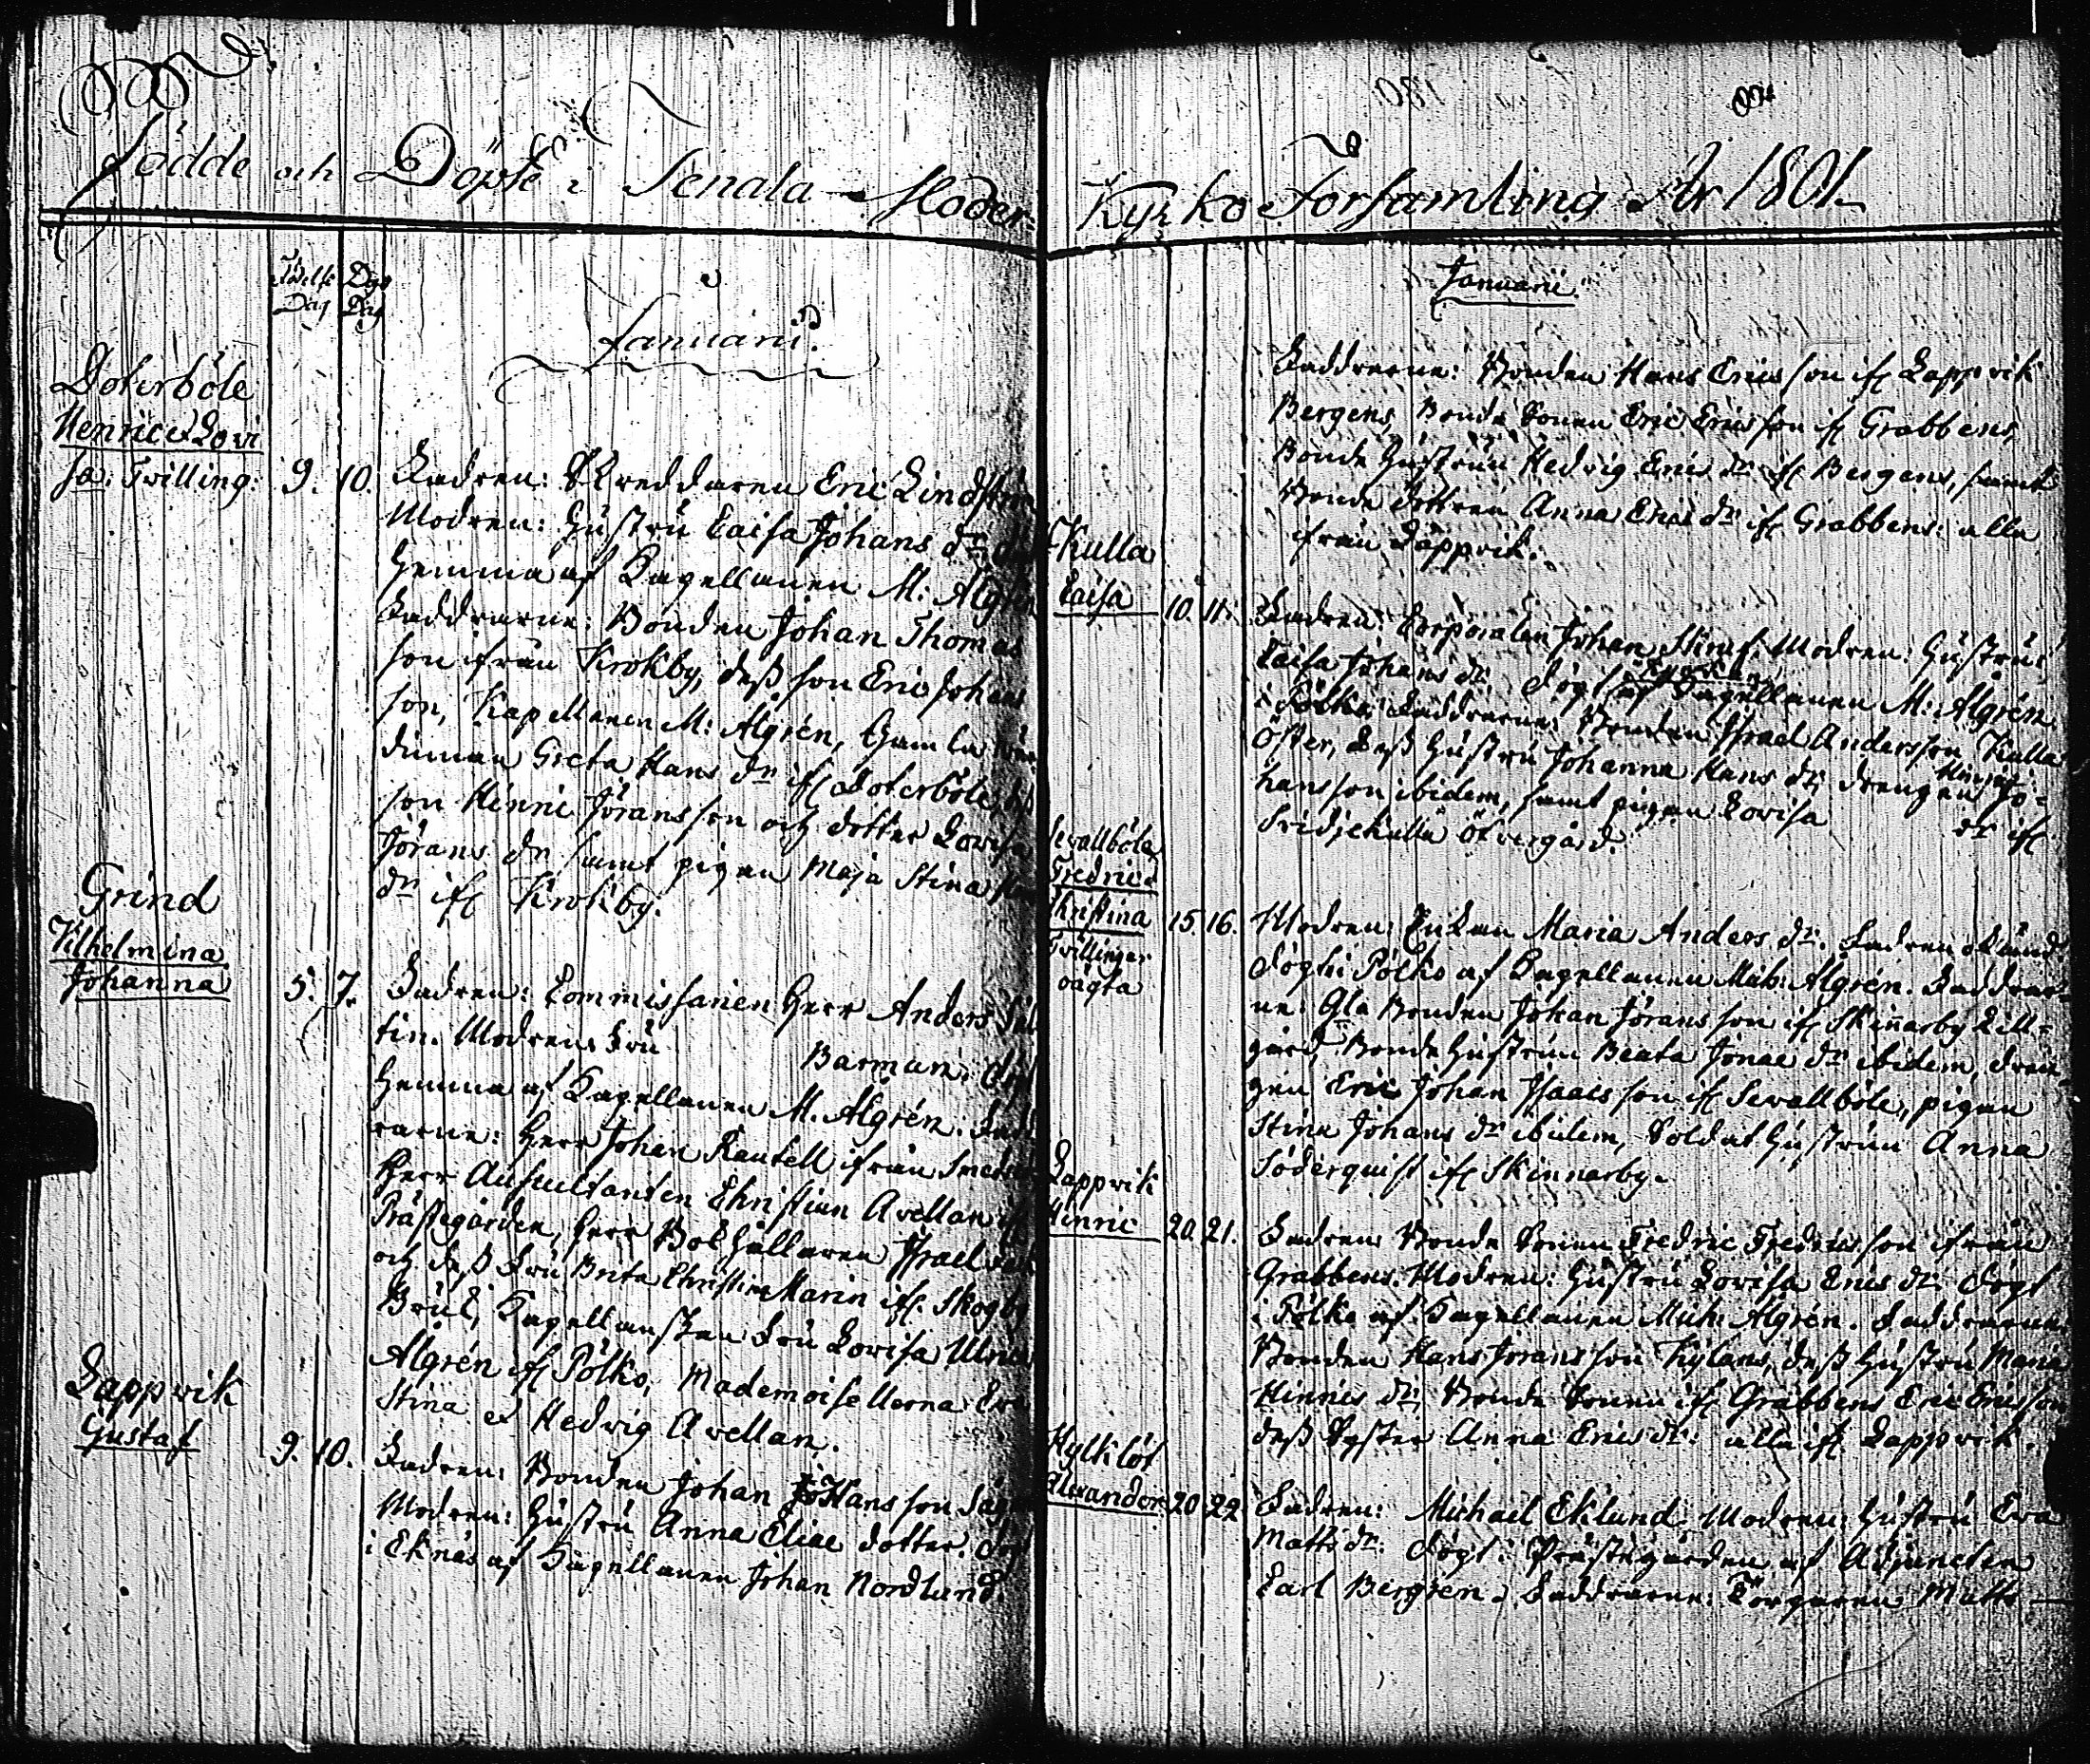 Födde och Döpte i Tenala Moder-
Födelse Dop
Dag Dag
Januarii.
Doterböle
Henric & Lovi
sa: Twilling: 9. 10. Fadren: Skreddaren Eric Lindström
Modren: Hustru Caisa Johans dr
hemma af Capellanen M: Algrén
Faddrarne: Bonden Johan Thomas
son ifrån Krokby, dess son Eric Johans
son, Kapellanen M: Algrén, Gamla
dinnan Greta Hans dr ifr Doterböle,
son Hinric Jöransson och dotter Lovisa
Jörans dr samt pigan Maja Stina
dr ifr Krokby.
Grind
Vilhelmina
Johanna 5. 7. Fadren: Commissarien Herr Anders
tin. Modren: Fru Barman:
hemma af Capellanen M. Algrén.
rarne: Herr Johan Kantell ifrån
Herr Auscultanten Christian Avellan
Prästegården, Herr Bokhållaren Israel
och dess Fru Brita Christina Marin ifr. Skogby
Bruk, Capellanskan Fru Lovisa Ulrica
Algrén ifr Pölko, Mademoisellerna
Stina & Hedvig Avellan.
Lappvik
Gustaf 9. 10. Fadren: Bonden Johan Johansson
Modren: Hustru Anna Eliae dotter.
i Eknäs af Capellanen Johan Nordlund.
Kyrko Församling År 1801.
Januarii.
Faddrarne: Bonden Hans Ericsson ifr Lappvik
Bergens, Bonde Sonen Eric Ericsson ifr Grabbens,
Bonde Hustrun Hedvig Erics dr ifr Bergens, samt
Bonde dottren Anna Erics dr ifr Grabbens: alla
ifrån Lappvik.
Kulla
Caisa 10. 11. Fadren: Corporalen Johan Modren: Hustru
Caisa Johans dr. Döpt af Capellanen M: Algrén
i Pölko. Faddrarne: Bonden Israel Andersson Kulla
Öster, dess Hustru Johanna Hans dr, drengen Hinric Jo-
hansson ibidem, samt pigan Lovisa dr ifr
Öfvergård.
Sevallböle
Fredric &
Christina 15. 16. Modren: Enkan Maria Anders dr. Fadren okänd.
Twillingar
oägta
Döpte i Pölko af Capellanen Mich: Algrén. Faddrar-
ne: Gla Bonden Johan Jöransson ifr Skinnarby Lill-
gård, Bonde Hustrun Beata Jonae dr ibidem, drän-
gen Eric Johan Isaacsson ifr Sevallböle, pigan
Stina Johans dr ibidem, Soldat Hustrun Anna
Söderquist ifr Skinnarby.
Lappvik
Hinric 20. 21. Fadren: Bonde Sonen Fredric Fredricsson ifrån
Grabbens. Modren: Hustru Lovisa Erics dr. Döpt
i Pölko af Capellanen Mich: Algrén. Faddrarne
Bonden Hans Jöransson Kylans, dess Hustru Maria
Hinrics dr, Bonde Sonen ifr Grabbens Eric Ericsson
dess Syster Anna Erics dr: alla ifr Lappvik.
Alexander 20 22 Fadren: Michael Eklund. Modren: Hustru Eva
Matts dr. Döpt i Prästegården af Adjuncten
Carl Bergren. Faddrarne: Torparen Matts